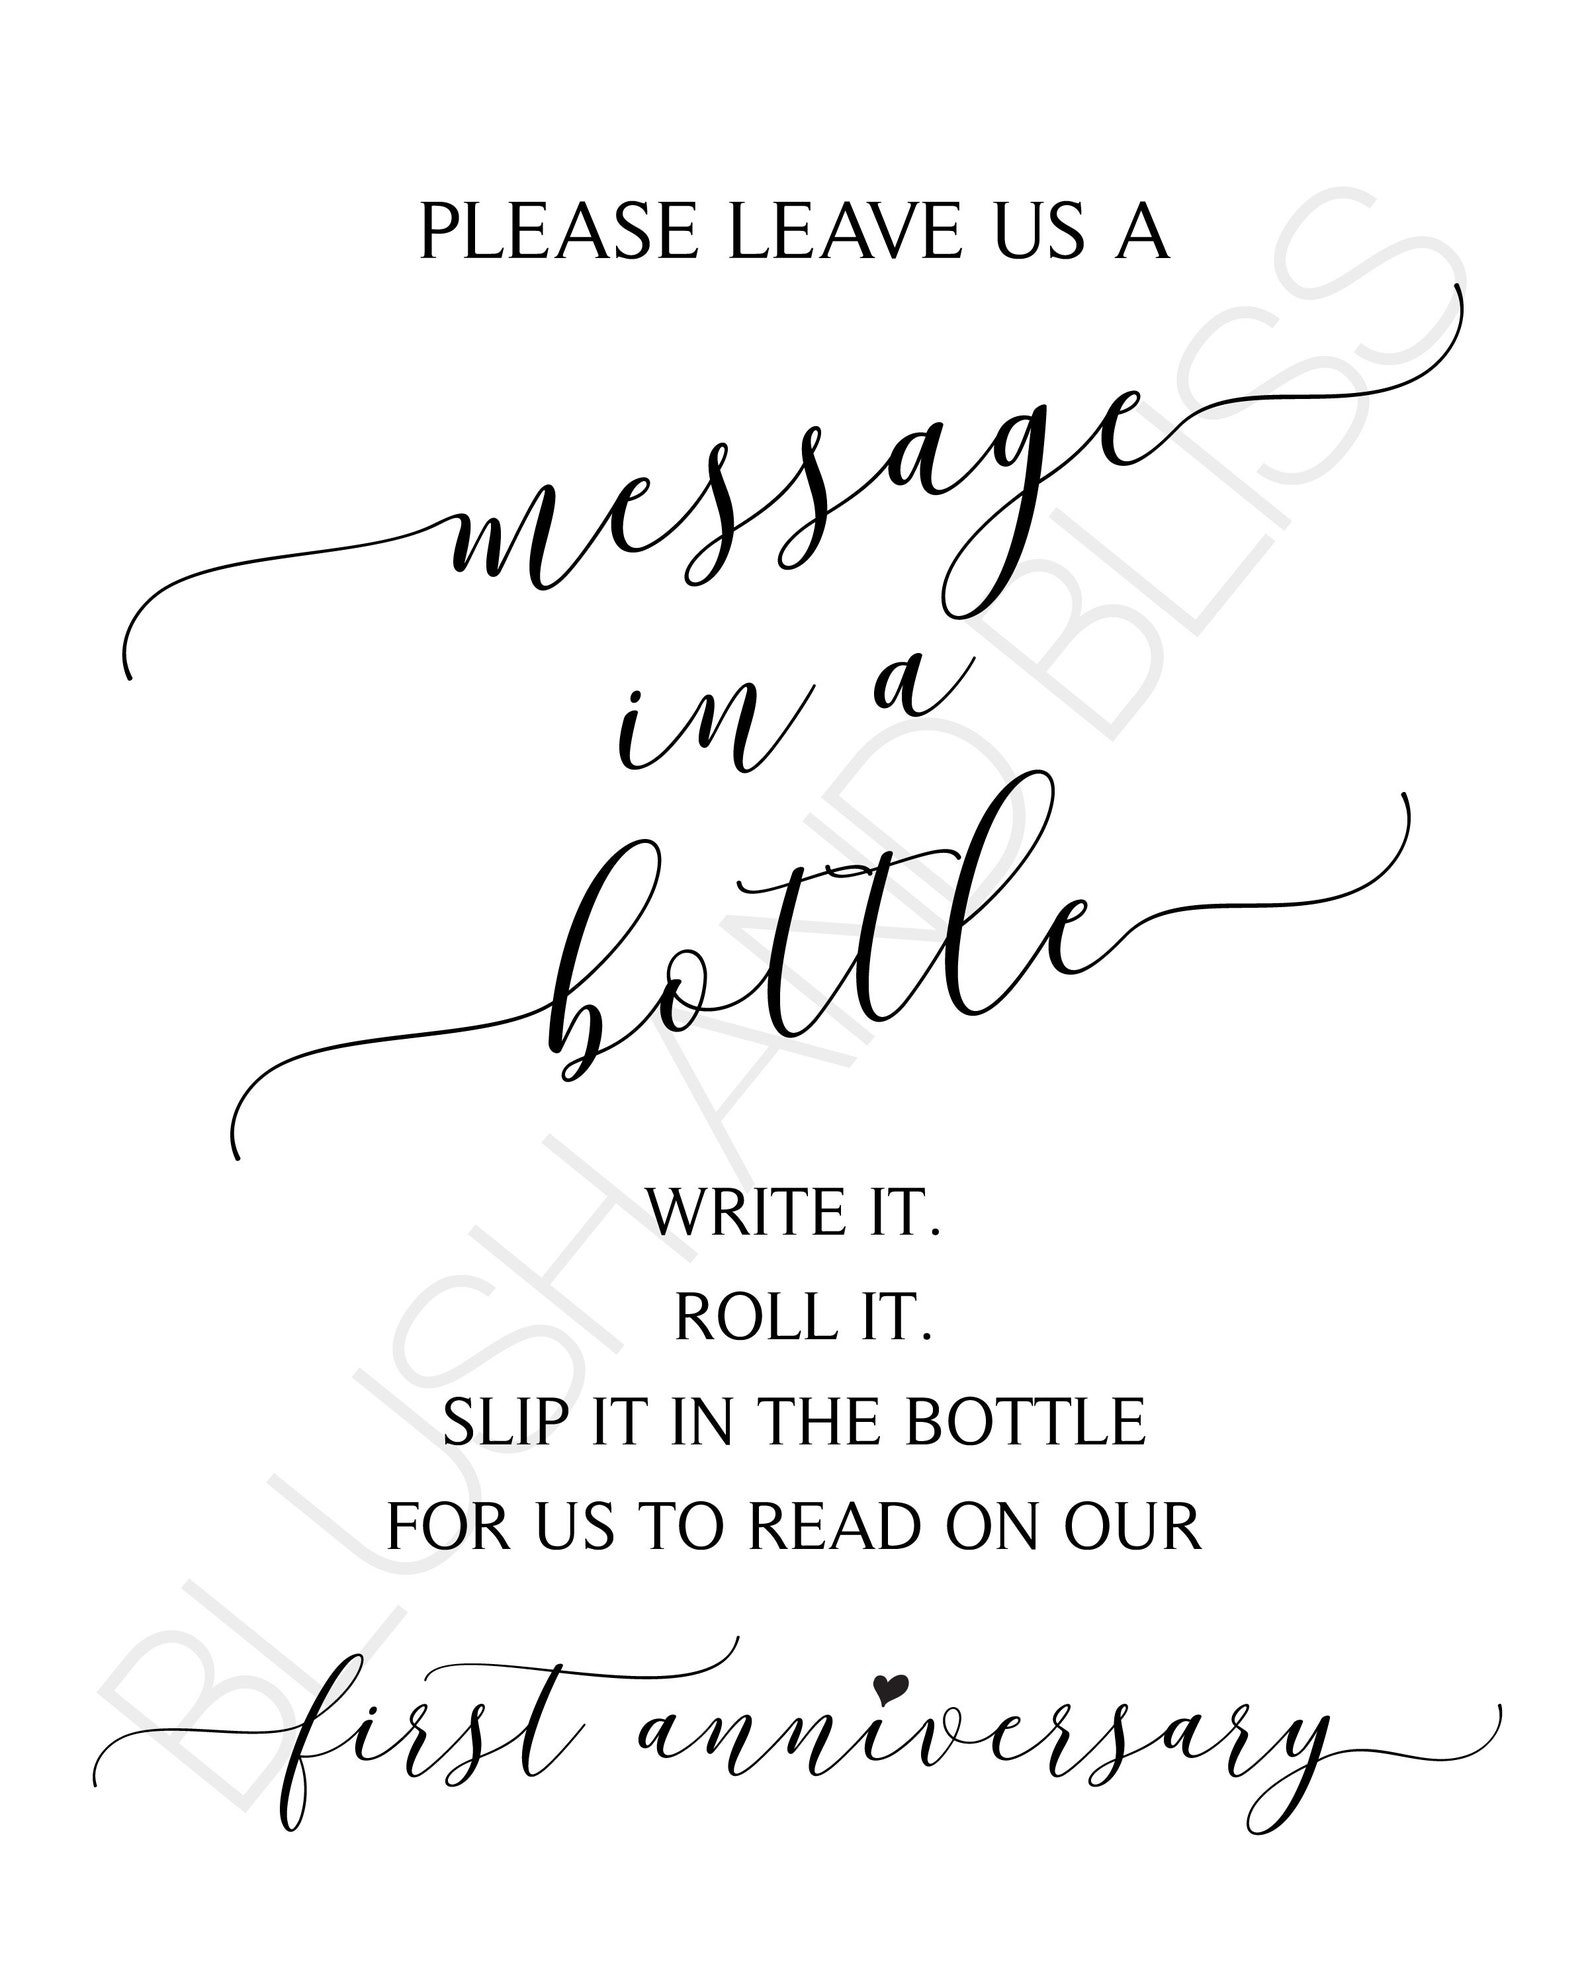 PLEASE LEAVE US A
message
in a
bottle
WRITE IT.
ROLL IT.
SLIP IT IN THE BOTTLE
FOR US TO READ ON OUR
first anniversary
BLUSH AND BLISS